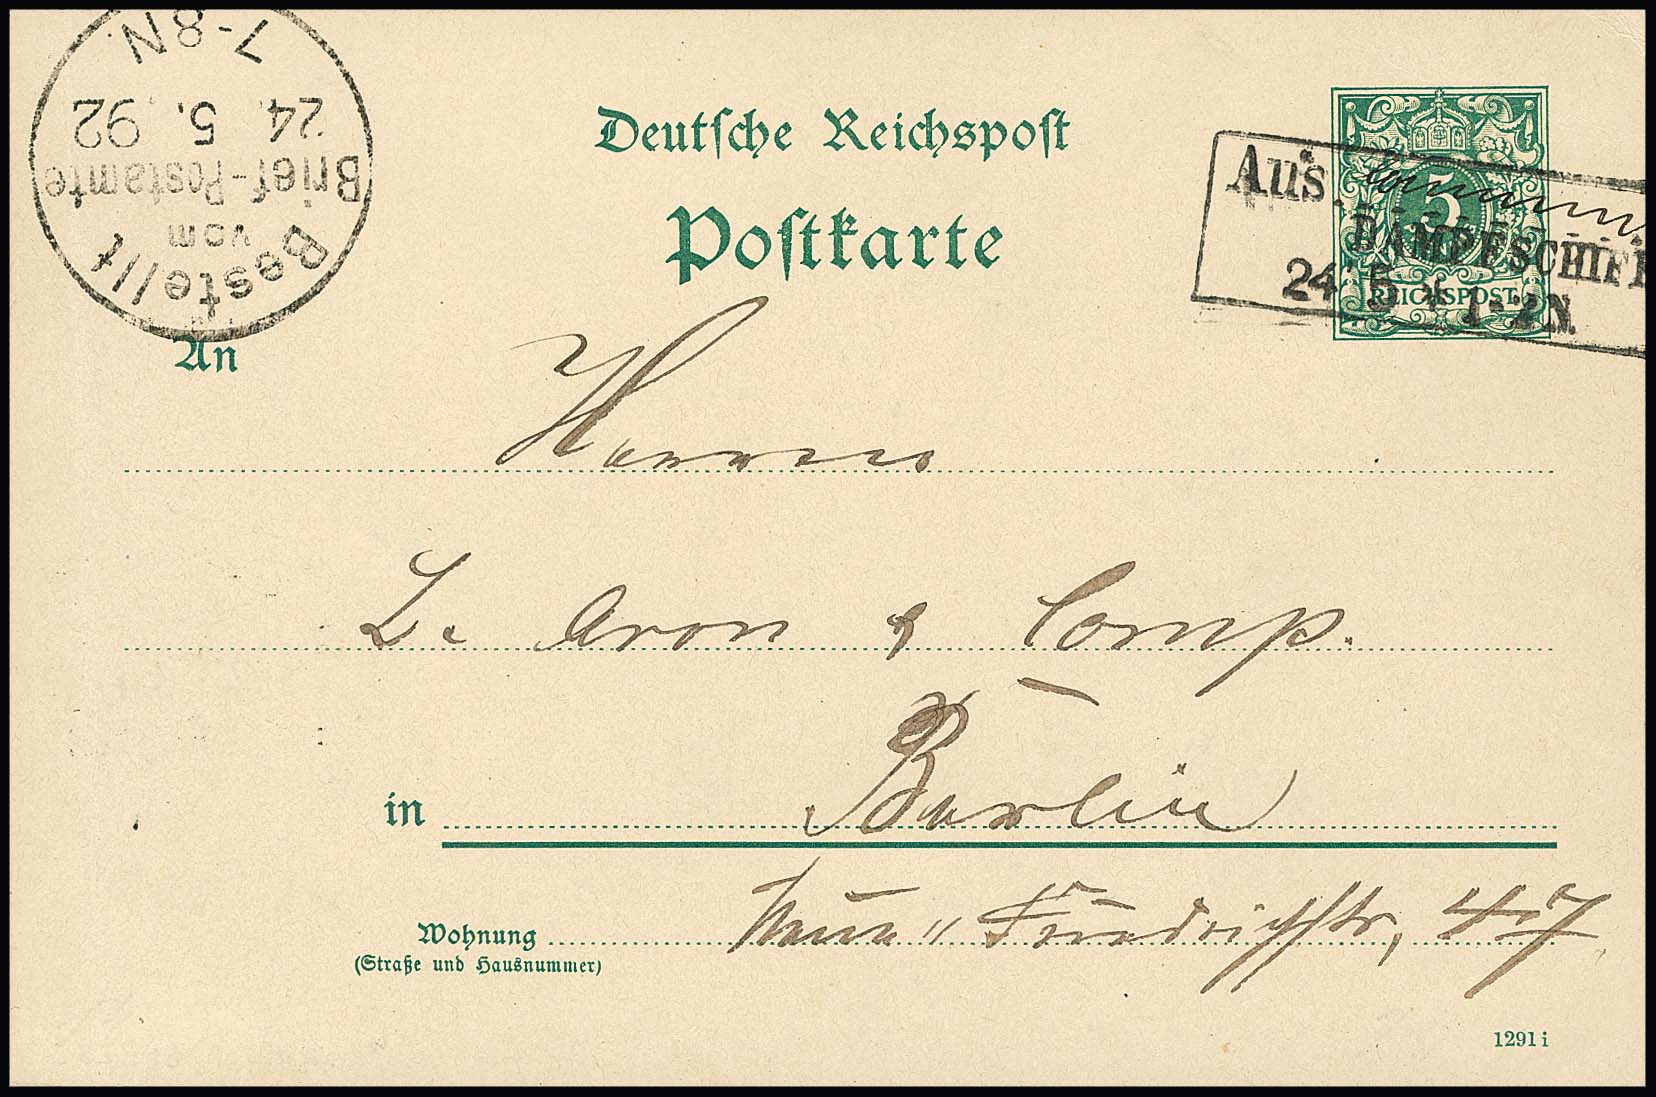 7-8N.
24. 5. 92
Brief-Postamte
vom
Bestellt
Deutsche Reichspost
Postkarte
5
REICHSPOST
Aus
DAMPFSCHIFF
24 5 * 1-2N.
An
Herren
L. Aron & Comp.
in Berlin
Wohnung Neue Friedrichstr, 47
(Straße und Hausnummer)
1291 i